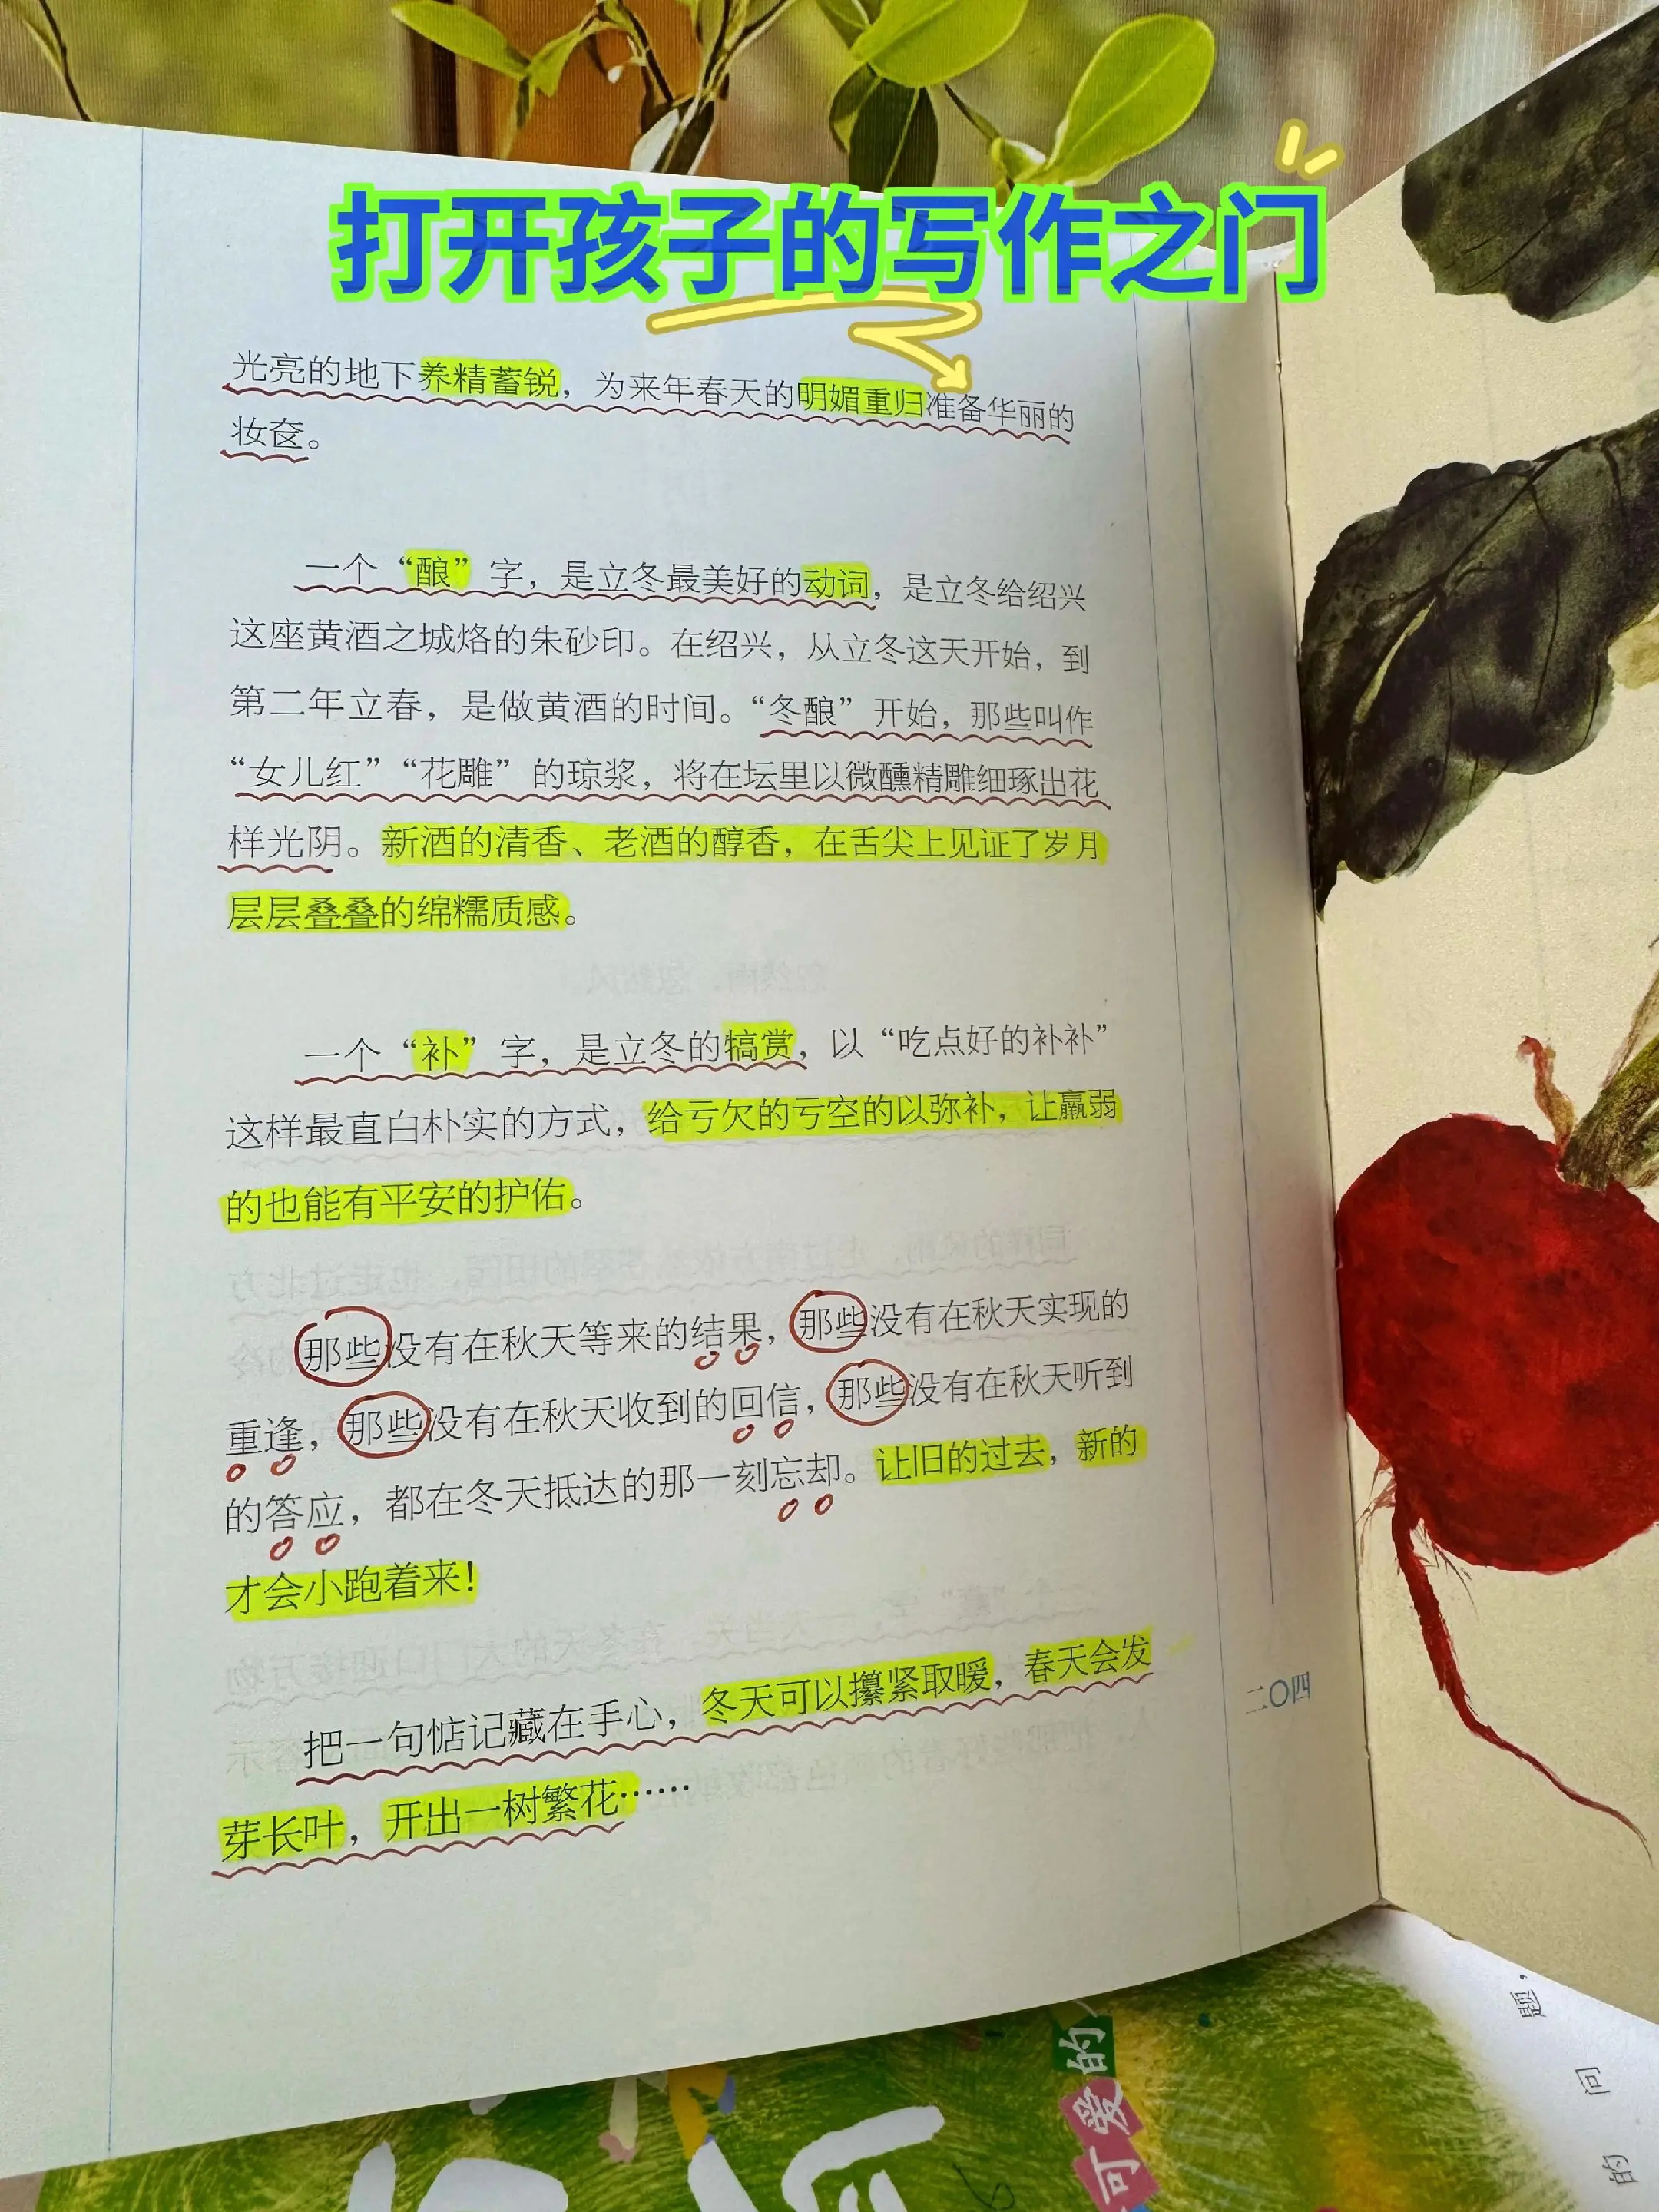 打开孩子的写作之门
光亮的地下养精蓄锐，为来年春天的明媚重归准备华丽的
妆奁。
一个“酿”字，是立冬最美好的动词，是立冬给绍兴
这座黄酒之城烙的朱砂印。在绍兴，从立冬这天开始，到
第二年立春，是做黄酒的时间。“冬酿”开始，那些叫作
“女儿红”“花雕”的琼浆，将在坛里以微醺精雕细琢出花
样光阴。新酒的清香、老酒的醇香，在舌尖上见证了岁月
层层叠叠的绵糯质感。
一个“补”字，是立冬的犒赏，以“吃点好的补补”
这样最直白朴实的方式，给亏欠的亏空的以弥补，让羸弱
的也能有平安的护佑。
那些没有在秋天等来的结果，那些没有在秋天实现的
重逢，那些没有在秋天收到的回信，那些没有在秋天听到
的答应，都在冬天抵达的那一刻忘却。让旧的过去，新的
才会小跑着来！
把一句惦记藏在手心，冬天可以攥紧取暖，春天会发
芽长叶，开出一树繁花……
二〇四
可爱的
题，
问
的